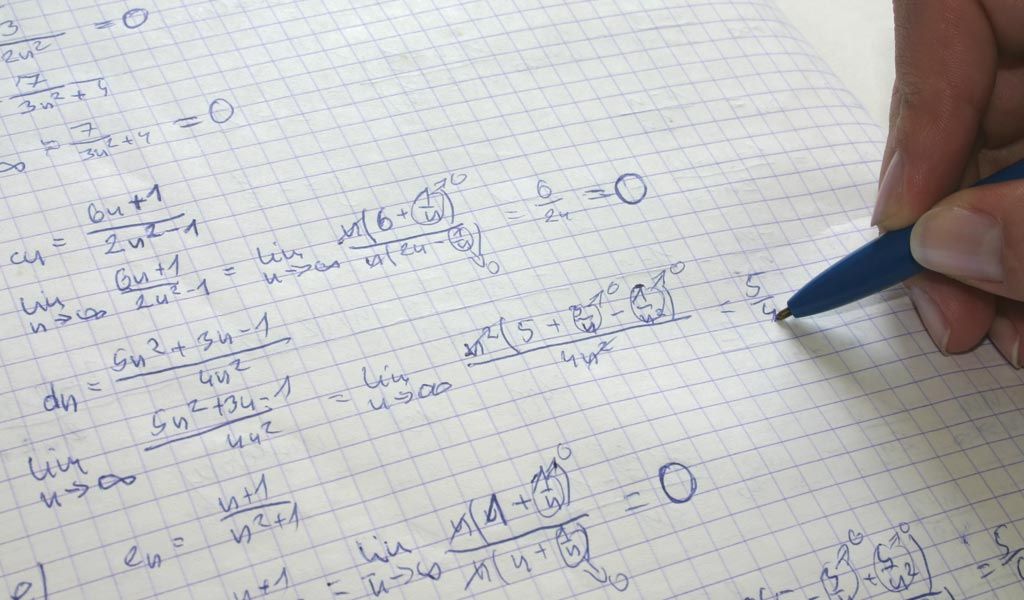 3/2n² = 0
7/3n²+4
∞ = 7/3n²+4 = 0
cn = 6n+1/2n²-1
lim n→∞ 6n+1/2n²-1 = lim n→∞ n(6 + 1/n)→0/n(2n - 1/n)→0 = 6/2n = 0
dn = 5n²+3n-1/4n²
lim n→∞ 5n²+3n-1/4n² = lim n→∞ n²(5 + 3/n→0 - 1/n²→0)/4n² = 5/4
en = n+1/n²+1
e) n+1 = lim n→∞ n(1 + 1/n)→0/n(n + 1/n)→0 = 0